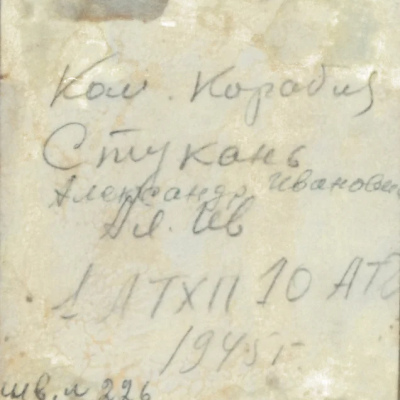 Ком. Корабля
Стукань
Александр Иванович
Ал. Ив
1 АТХП 10 АТД
1945 г.
инв. № 226